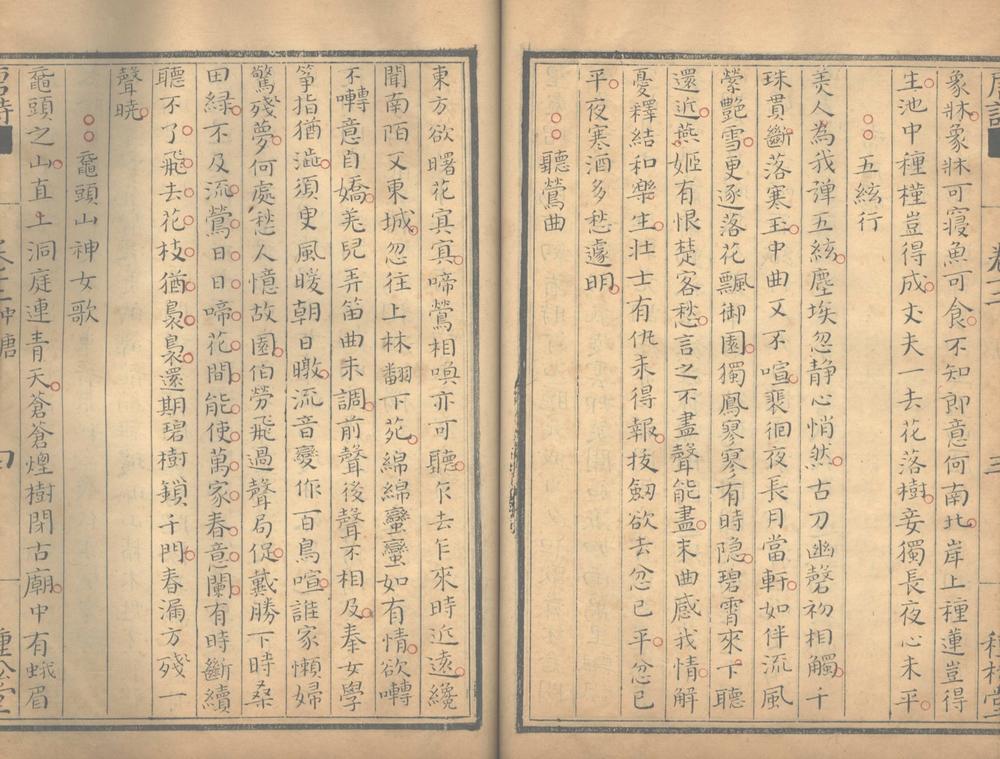 唐詩 卷三 三 種松堂
象牀象牀可寢魚可食不知郎意何南北岸上種蓮豈得
生池中種槿豈得成丈夫一去花落樹妾獨長夜心未平
五絃行
美人為我彈五絃塵埃忽静心悄然古刀幽磬初相觸千
珠貫斷落寒玉中曲又不喧裴徊夜長月當軒如伴流風
縈艷雪更逐落花飄御園獨鳳寥寥有時隐碧霄來下聽
還近燕姬有恨楚客愁言之不盡聲能盡末曲感我情解
憂釋結和樂生壮士有仇未得報拔劒欲去忿已平忿已
平夜寒酒多愁遽明
聽鶯曲
東方欲曙花冥冥啼鶯相喚亦可聽乍去乍來時近遠纔
聞南陌又東城忽往上林翻下苑綿綿蠻蠻如有情欲囀
不囀意自嬌羌兒弄笛曲未調前聲後聲不相及秦女學
箏指猶澁須臾風暖朝日暾流音變作百鳥喧誰家懶婦
驚殘夢何處愁人憶故園伯勞飛過聲局促戴勝下時桑
田緑不及流鶯日日啼花間能使萬家春意闌有時斷續
聽不了飛去花枝猶裊裊還期碧樹鎖千門春漏方殘一
聲曉
黿頭山神女歌
黿頭之山直上洞庭連青天蒼蒼煙樹閉古廟中有蛾眉
唐詩 卷三 四